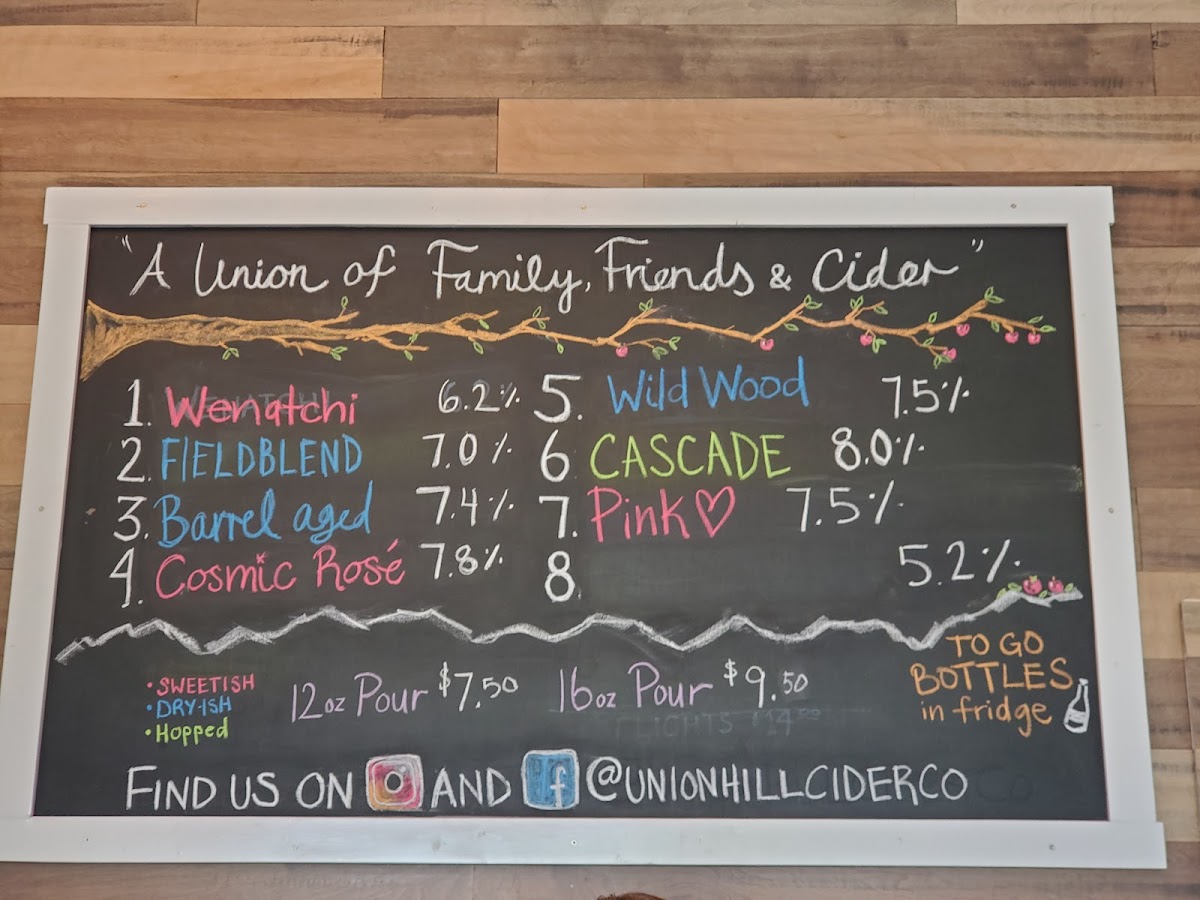 "A Union of Family, Friends & Cider"
1. Wenatchi 6.2%
2. FIELDBLEND 7.0%
3. Barrel aged 7.4%
4. Cosmic Rosé 7.8%
5. Wild Wood 7.5%
6 CASCADE 8.0%
7. Pink♡ 7.5%
8. 5.2%
• SWEETISH
• DRY-ISH
• Hopped
12oz Pour $7.50
16oz Pour $9.50
FLIGHTS $14.00
TO GO
BOTTLES
in fridge
FIND US ON AND f @UNIONHILLCIDERCO